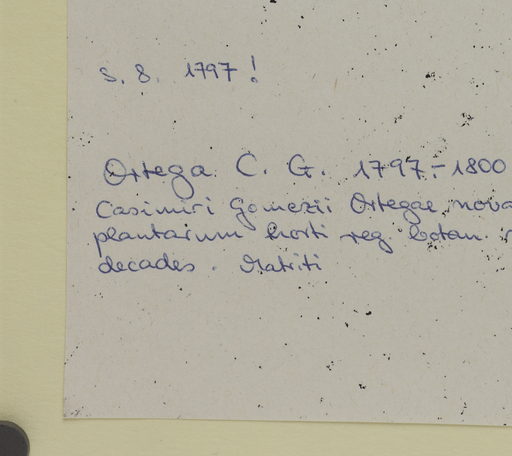 s. 8. 1797!
Ortega C. G. 1797-1800
Casimiri Gomezii Ortegae, nova
plantarum horti reg botan
decades. Matriti